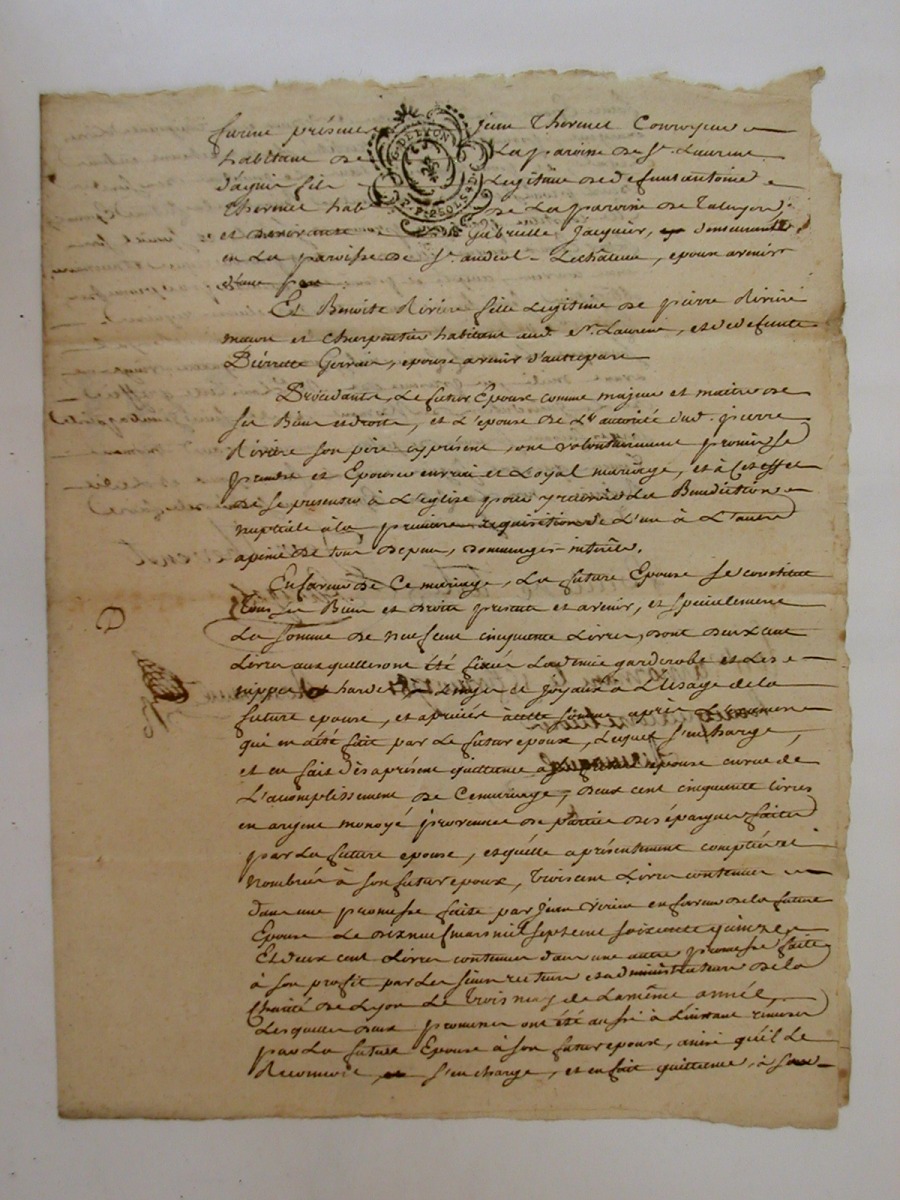 furent présens Jean Thormet
habitant de La paroisse de St. Laurent
d'agni fils Légitime de defunt antoine
Thormet hab de La paroisse de
et de Gabrielle Jacquier,
en La paroisse de St. andeol Lechâteau, epoux avenir
d'une part
G. DE LYON
P. P. 2 SOLS
Et Benoite Riviere fille Légitime de pierre Riviere
maçon et Charpentier habitant aud. St. Laurent, et de defunte
Pierrette Gervais, epouse avenir d'autrepart
Procedants, Le futur Epoux comme majeur et maître de
ses Biens et droits, et L'epouse de L'autorité dud. pierre
Riviere son père cyprésent, ont volontairement promis se
prendre et Epouser en vrai et Loyal mariage, et à Cet effet
de se presenter à L'église pour y recevoir La Benediction
nuptiale à la premiere requisition de L'un à L'autre
apeine de tous depens, dommages interêts.
En faveur de Ce mariage, La future Epouse se constitue
tous ses Biens et droits presents et avenir, et specialement
La somme de neuf cent cinquante Livres, dont deux cent
Livres auxquelles ont été fixés garderobe et Les
nippes hardes Linges et joyaux à L'usage de la
future epouse, et apreciés à cette somme après L'examen
qui en a été fait par Le futur epoux, Lequel s'en charge,
et en fait dès aprésent quittance epouse
L'acomplissement de Ce mariage, deux cent cinquante Livres
en argent monoyé provenues de partie des épargnes faites
par La future epouse, et qu'elle a présentement comptées et
nombrées à son futur epoux, trois cent Livres contenues
dans une promesse faite par Jean en faveur de la future
Epouse Le dix neuf mars mil sept cent soixante quinze
Et deux cent Livres contenues dans une autre promesse faite
à son profit par Les sieurs recteurs et administrateurs de la
Charité de Lyon Le trois may de La même année,
Lesquelles deux promesses ont été aussi à L'instant remises
par La future Epouse à son futur epoux, ainsi qu'il Le
Reconnoit, s'en charge, et en fait quittance, à